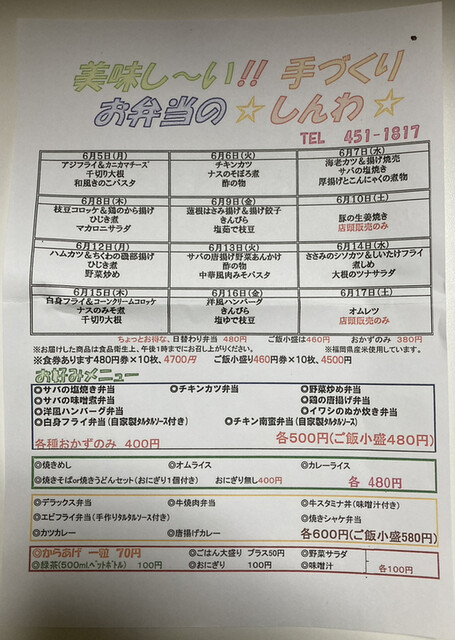 美味し～い!! 手づくり
お弁当の ☆ しんわ ☆
TEL 451-1817
6月5日(月) 6月6日(火) 6月7日(水)
アジフライ&カニカマチーズ チキンカツ 海老カツ&揚げ焼売
千切り大根 ナスのそぼろ煮 サバの塩焼き
和風きのこパスタ 酢の物 厚揚げとこんにゃくの煮物
6月8日(木) 6月9日(金) 6月10日(土)
枝豆コロッケ&鶏のから揚げ 蓮根はさみ揚げ&揚げ餃子 豚の生姜焼き
ひじき煮 きんぴら 店頭販売のみ
マカロニサラダ 塩茹で枝豆
6月12日(月) 6月13日(火) 6月14日(水)
ハムカツ&ちくわの磯部揚げ サバの唐揚げ野菜あんかけ ささみのシソカツ&しいたけフライ
ひじき煮 酢の物 煮しめ
野菜炒め 中華風肉みそパスタ 大根のツナサラダ
6月15日(木) 6月16日(金) 6月17日(土)
白身フライ&コーンクリームコロッケ 洋風ハンバーグ オムレツ
ナスのみそ煮 きんぴら 店頭販売のみ
千切り大根 塩ゆで枝豆
ちょっとお得な、日替わり弁当 480円 ご飯小盛は460円 おかずのみ 380円
※お届けした商品は食品衛生上、午後1時までにお召し上がりください。 ※福岡県産米使用しています。
※食券あります480円券×10枚、4700円 ご飯小盛り460円券×10枚、4500円
お好みメニュー
◎サバの塩焼き弁当 ◎チキンカツ弁当 ◎野菜炒め弁当
◎サバの味噌煮弁当 ◎鶏の唐揚げ弁当
◎洋風ハンバーグ弁当 ◎イワシのぬか炊き弁当
◎白身フライ弁当(自家製タルタルソース付き) ◎チキン南蛮弁当(自家製タルタルソース)
各種おかずのみ 400円 各500円(ご飯小盛480円)
◎焼きめし ◎オムライス ◎カレーライス
◎焼きそばor焼きうどんセット(おにぎり1個付き) おにぎり無し400円 各 480円
◎デラックス弁当 ◎牛焼肉弁当 ◎牛スタミナ丼(味噌汁付き)
◎エビフライ弁当(手作りタルタルソース付き) ◎焼きシャケ弁当
◎カツカレー ◎唐揚げカレー 各600円(ご飯小盛580円)
◎からあげ 一粒 70円 ◎ごはん大盛り プラス50円 ◎野菜サラダ
◎緑茶(500mlペットボトル) 100円 ◎おにぎり 100円 ◎味噌汁 各100円